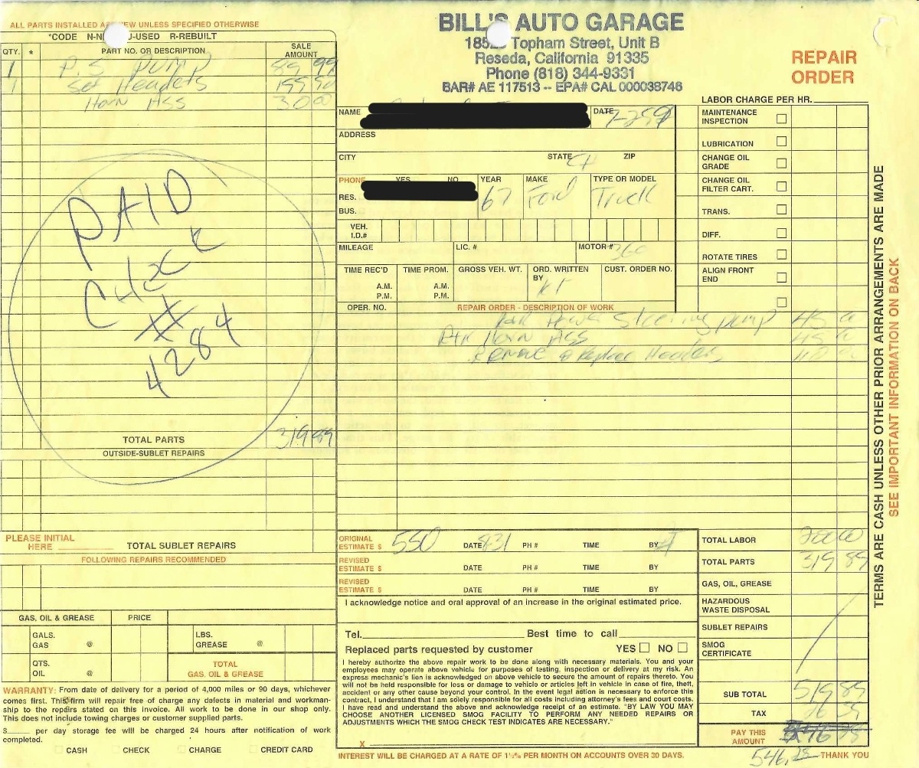 ALL PARTS INSTALLED ARE NEW UNLESS SPECIFIED OTHERWISE
*CODE N-N U-USED R-REBUILT
QTY. * PART NO. OR DESCRIPTION SALE AMOUNT
1 P.S PUMP 99
1 Set Headers
Horn Ass 30 00
PAID
CHECK
#
4284
TOTAL PARTS 319 89
OUTSIDE-SUBLET REPAIRS
PLEASE INITIAL HERE TOTAL SUBLET REPAIRS
FOLLOWING REPAIRS RECOMMENDED
GAS, OIL & GREASE PRICE
GALS. GAS @ LBS. GREASE @
QTS. OIL @ TOTAL GAS, OIL & GREASE
WARRANTY: From date of delivery for a period of 4,000 miles or 90 days, whichever
comes first. This firm will repair free of charge any defects in material and workman-
ship to the repairs stated on this invoice. All work to be done in our shop only.
This does not include towing charges or customer supplied parts.
$ per day storage fee will be charged 24 hours after notification of work
completed.
CASH CHECK CHARGE CREDIT CARD
BILL'S AUTO GARAGE
Topham Street, Unit B
Reseda, California 91335
Phone (818) 344-9331
BAR# AE 117513 -- EPA# CAL 000038746
REPAIR
ORDER
NAME DATE
ADDRESS
CITY STATE CA ZIP
PHONE YES NO YEAR MAKE TYPE OR MODEL
RES. 67 Ford Truck
BUS.
VEH. I.D.#
MILEAGE LIC. # MOTOR# 360
TIME REC'D TIME PROM. GROSS VEH. WT. ORD. WRITTEN BY CUST. ORDER NO.
A.M. A.M.
P.M. P.M.
OPER. NO. REPAIR ORDER - DESCRIPTION OF WORK
Steering pump
Horn Ass
Remove & Replace Headers
LABOR CHARGE PER HR.
MAINTENANCE INSPECTION
LUBRICATION
CHANGE OIL GRADE
CHANGE OIL FILTER CART.
TRANS.
DIFF.
ROTATE TIRES
ALIGN FRONT END
TERMS ARE CASH UNLESS OTHER PRIOR ARRANGEMENTS ARE MADE
SEE IMPORTANT INFORMATION ON BACK
ORIGINAL ESTIMATE $ 550 DATE 8-31 PH # TIME BY
REVISED ESTIMATE $ DATE PH # TIME BY
REVISED ESTIMATE $ DATE PH # TIME BY
I acknowledge notice and oral approval of an increase in the original estimated price.
Tel. Best time to call
Replaced parts requested by customer YES NO
I hereby authorize the above repair work to be done along with necessary materials. You and your
employees may operate above vehicle for purposes of testing, inspection or delivery at my risk. An
express mechanic's lien is acknowledged on above vehicle to secure the amount of repairs thereto. You
will not be held responsible for loss or damage to vehicle or articles left in vehicle in case of fire, theft,
accident or any other cause beyond your control. In the event legal action is necessary to enforce this
contract, I understand that I am solely responsible for all costs including attorney's fees and court costs.
I have read and understand the above and acknowledge receipt of an estimate. "BY LAW YOU MAY
CHOOSE ANOTHER LICENSED SMOG FACILITY TO PERFORM ANY NEEDED REPAIRS OR
ADJUSTMENTS WHICH THE SMOG CHECK TEST INDICATES ARE NECESSARY."
X
INTEREST WILL BE CHARGED AT A RATE OF 1½% PER MONTH ON ACCOUNTS OVER 30 DAYS.
TOTAL LABOR 200 00
TOTAL PARTS 319 89
GAS, OIL, GREASE
HAZARDOUS WASTE DISPOSAL
SUBLET REPAIRS
SMOG CERTIFICATE
SUB TOTAL 519 89
TAX 26 39
PAY THIS AMOUNT
546.28 THANK YOU